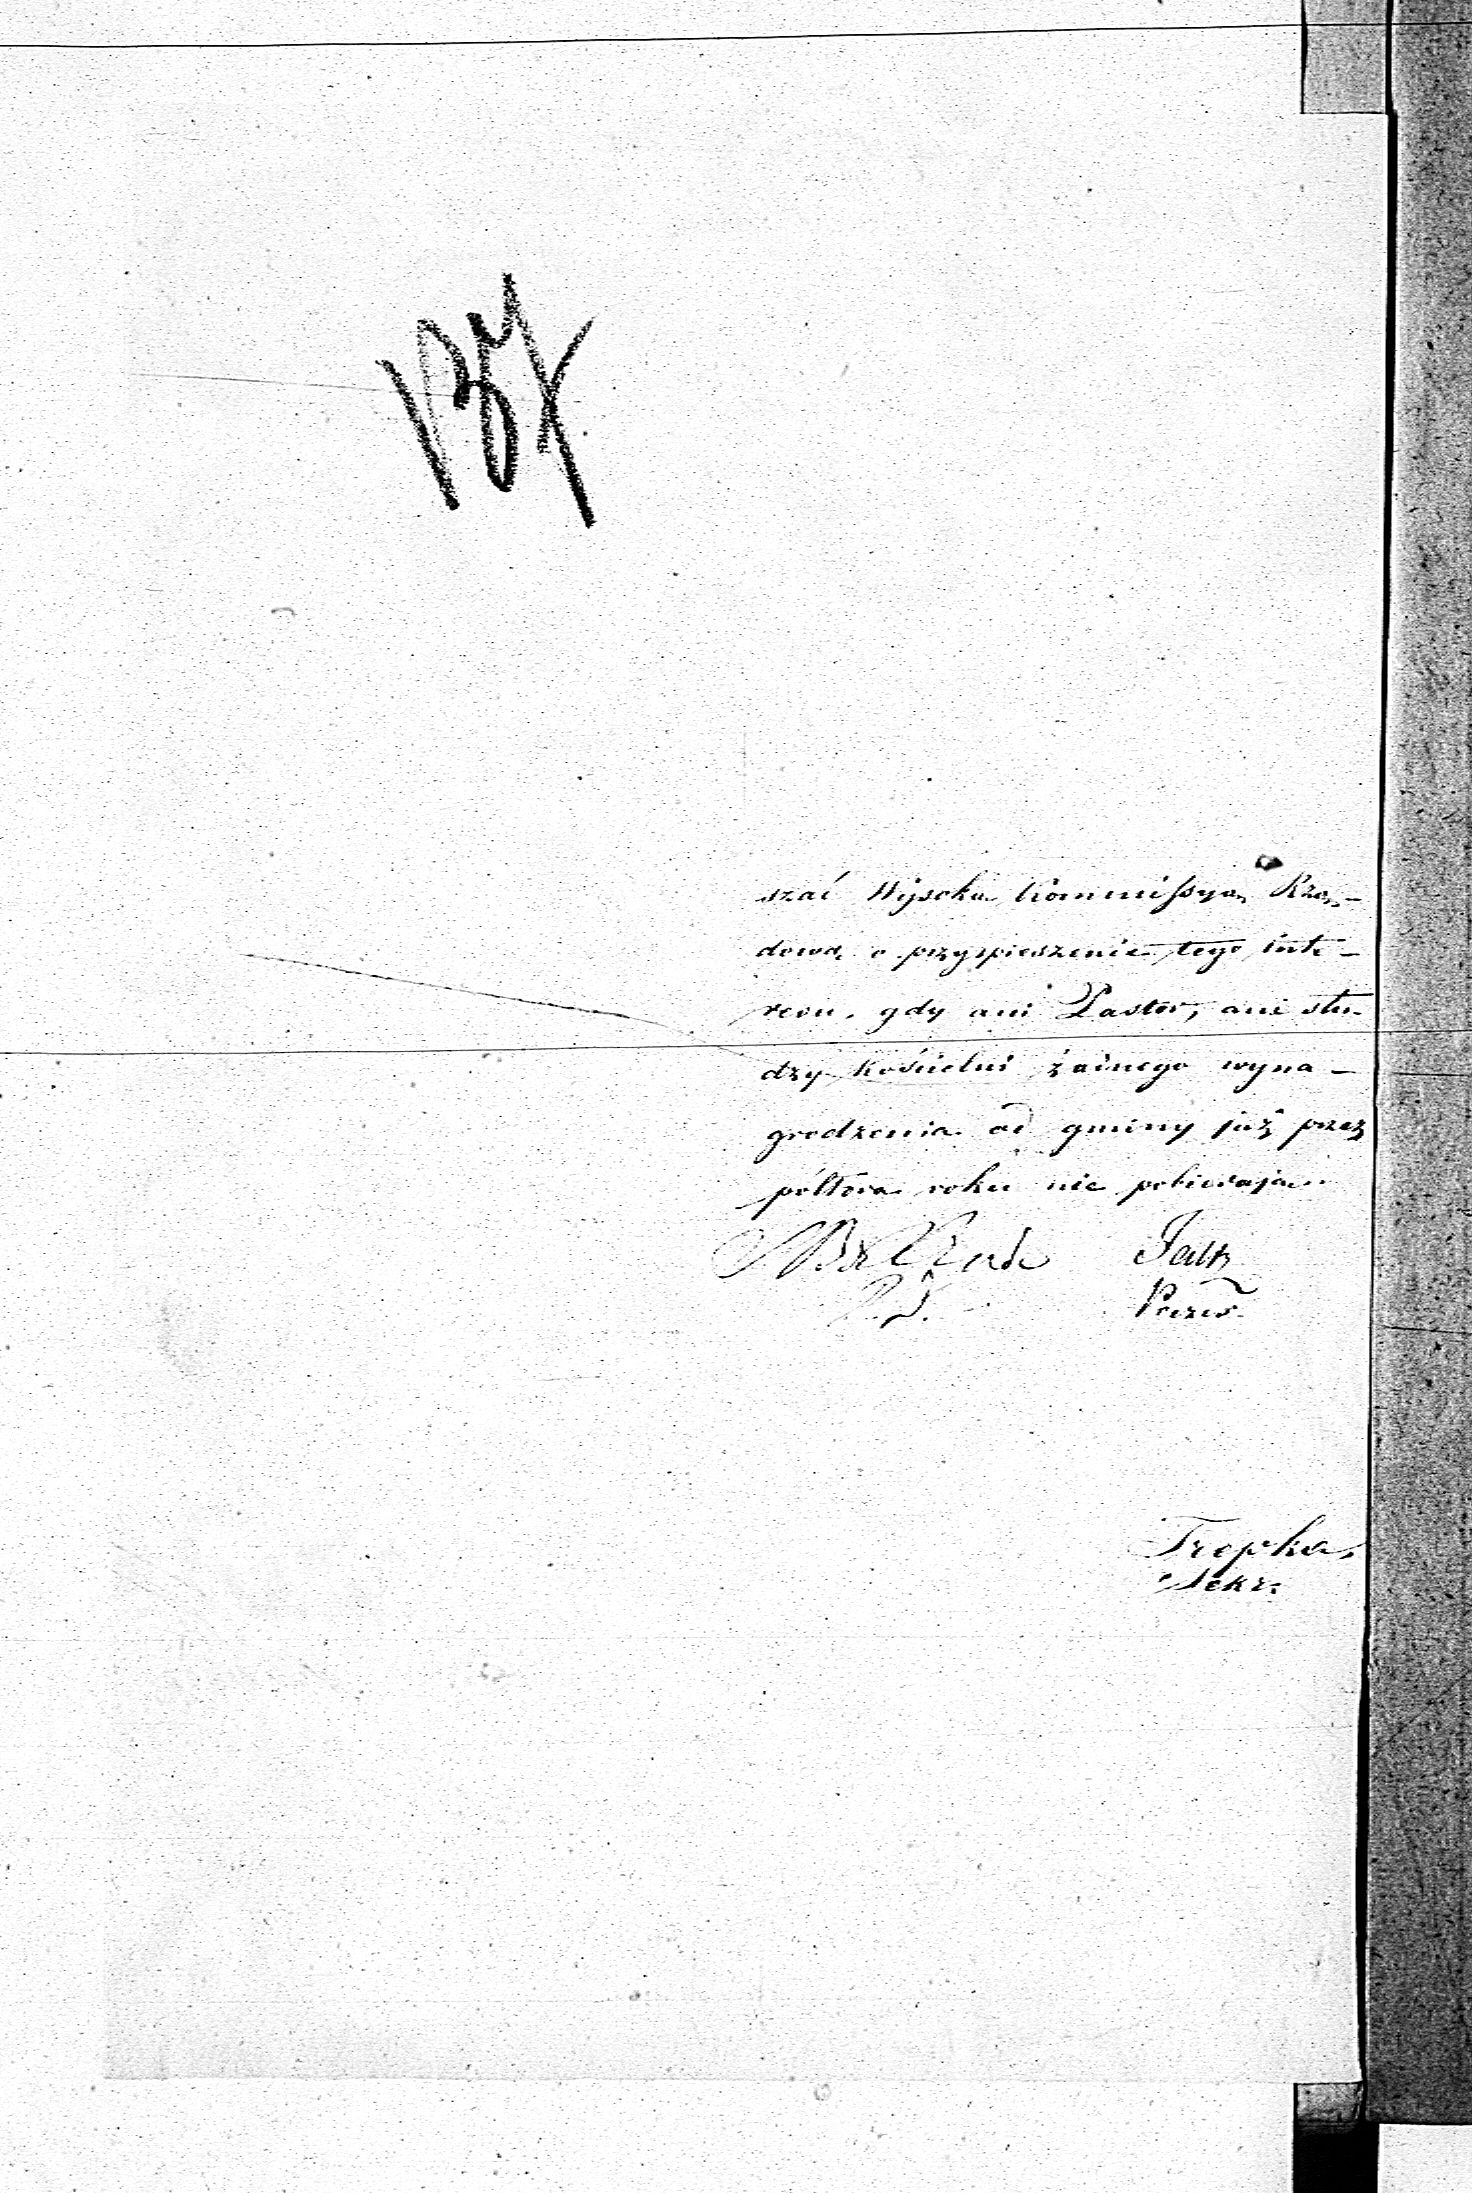 szać Wysoka Kommissyą Rzą-
dową o przyspieszenie tego inte-
resu, gdy ani Pastor, ani słu-
dzy kościelni żadnego wyna-
grodzenia od gminy już przez
półtora roku nie pobierają.
Faltz
Prezes
Trepka,
Sekr: